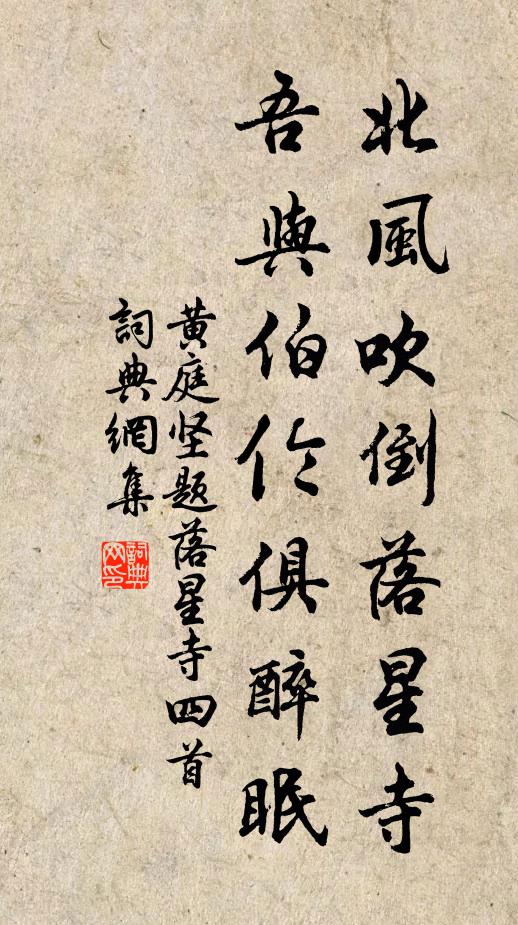 北風吹倒落星寺
吾與伯伶俱醉眠
黄庭坚题落星寺四首
詞典網集
詞典网印